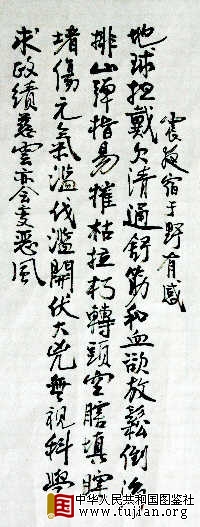 震夜宿于野有感
地球担戴欠清通舒筋和血欲放鬆倒海
排山弹指易摧枯拉朽轉頭空瞎填
堵傷元氣濫伐濫開伏大兇無視科學
求政績暮雲亦会变恶風
中华人民共和国图鉴社
www.tujian.org